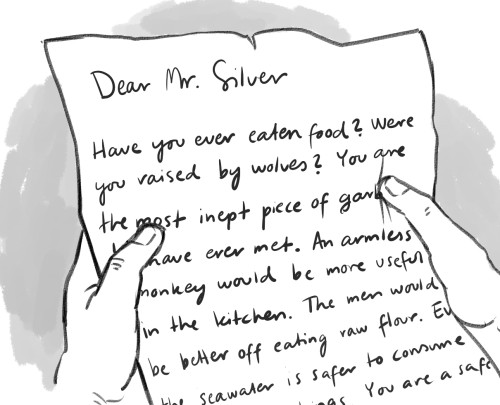 Dear Mr. Silver
Have you ever eaten food? Were
you raised by wolves? You are
the most inept piece of
have ever met. An armless
monkey would be more useful
in the kitchen. The men would
be better off eating raw flour.
the seawater is safer to consume
You are a safe